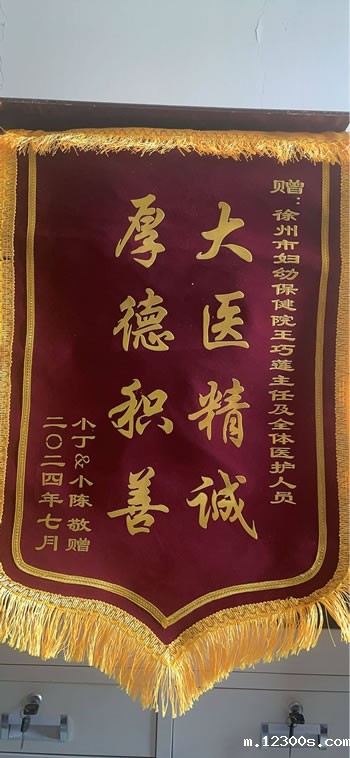 赠：徐州市妇幼保健院王巧莲主任及全体医护人员
大医精诚
厚德积善
小丁&小陈敬赠
二〇二四年七月
m.12300s.com